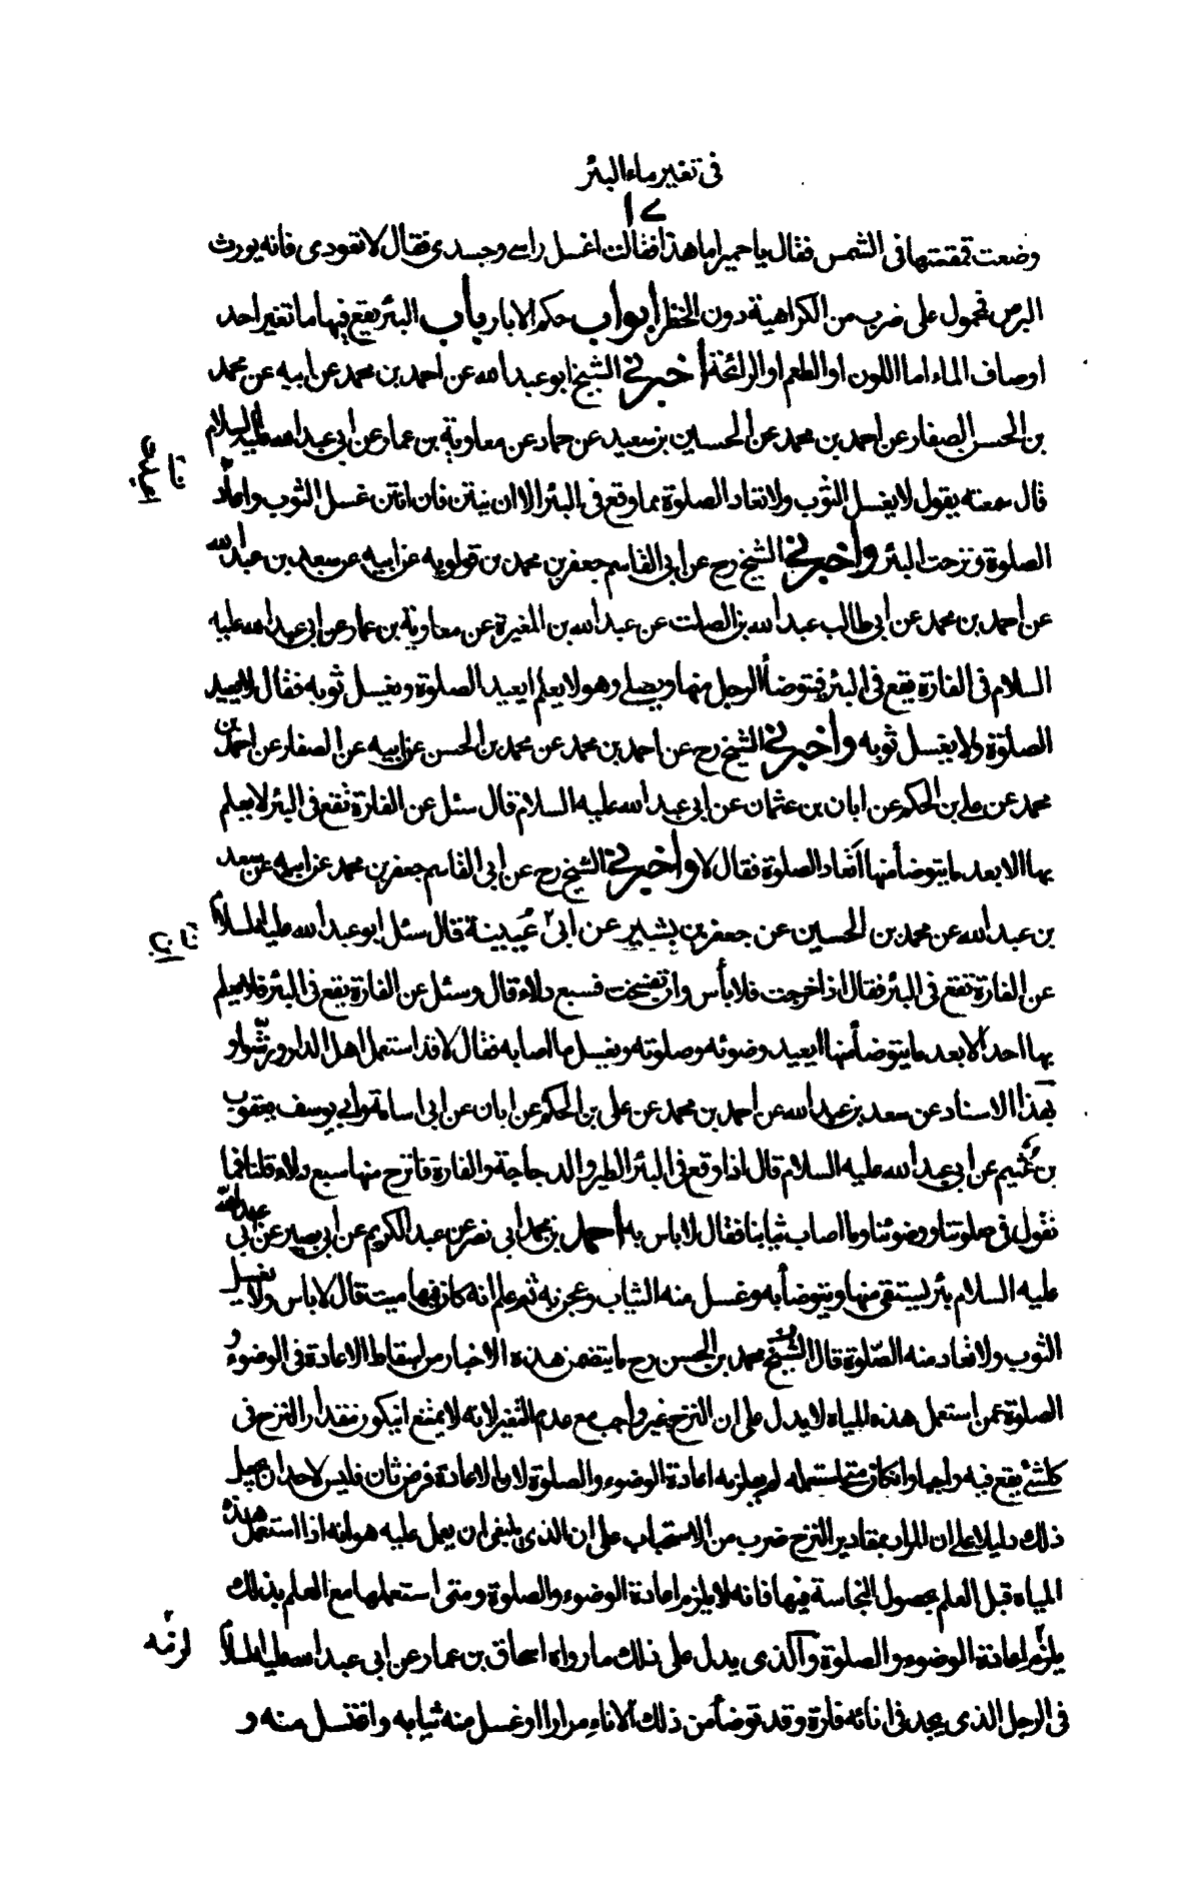 فى تغير ماء البئر
١٧
وضعت قمقمتها فى الشمس فقال يا حميرا ما هذا فقالت اغسل راسى وجسدى فقال لا تعودى فانه يورث
البرص فمحمول على ضرب من الكراهية دون الحظر ابواب حكم الابار باب البئر يقع فيها ما تغير احد
اوصاف الماء اما اللون او الطعم او الرائحة اخبرنى الشيخ ابو عبد الله عن احمد بن محمد عن ابيه عن محمد
بن الحسن الصفار عن احمد بن محمد عن الحسين بن سعيد عن حماد عن معاوية بن عمار عن ابى عبد الله عليه السلام
قال سمعته يقول لا يغسل الثوب ولا تعاد الصلوة مما وقع فى البئر الا ان ينتن فان انتن غسل الثوب واعاد
الصلوة ونزحت البئر واخبرنى الشيخ رح عن ابى القاسم جعفر بن محمد بن قولويه عن ابيه عن سعد بن عبد الله
عن احمد بن محمد عن ابى طالب عبد الله بن الصلت عن عبد الله بن المغيرة عن معاوية بن عمار عن ابى عبد الله عليه
السلام فى الفارة يقع فى البئر فيتوضأ الرجل منها ويصلى وهو لا يعلم ايعيد الصلوة ويغسل ثوبه فقال لا يعيد
الصلوة ولا يغسل ثوبه واخبرنى الشيخ رح عن احمد بن محمد عن محمد بن الحسن عن ابيه عن الصفار عن احمد بن
محمد عن على بن الحكم عن ابان بن عثمان عن ابى عبد الله عليه السلام قال سئل عن الفارة تقع فى البئر لا يعلم
بها الا بعد ما يتوضأ منها اتعاد الصلوة فقال لا واخبرنى الشيخ رح عن ابى القاسم جعفر بن محمد عن ابيه عن سعد
بن عبد الله عن محمد بن الحسين عن جعفر بن بشير عن ابى عيينة قال سئل ابو عبد الله عليه السلام
عن الفارة تقع فى البئر فقال اذا خرجت فلا بأس وان تفسخت فسبع دلاء قال وسئل عن الفارة يقع فى البئر فلا يعلم
بها احد الا بعد ما يتوضأ منها ايعيد وضوئه وصلوته ويغسل ما اصابه فقال لا قد استعمل اهل الدار ورشوا و
بهذا الاسناد عن سعد بن عبد الله عن احمد بن محمد عن على بن الحكم عن ابان عن ابى اسامة وابى يوسف يعقوب
بن عثيم عن ابى عبد الله عليه السلام قال اذا وقع فى البئر الطير والدجاجة والفارة فانزح منها سبع دلاء قلنا فما
تقول فى صلوتنا ووضوئنا وما اصاب ثيابنا فقال لا باس به احمد بن محمد ابى نصر عن عبد الكريم عن ابى بصير عن ابى عبد الله
عليه السلام بئر يستقى منها ويتوضأ به وغسل منه الثياب وعجن به ثم علم انه كان فيها ميت قال لا باس ولا يغسل
الثوب ولا تعاد منه الصلوة قال الشيخ محمد بن الحسن رح ما يتضمن هذه الاخبار من اسقاط الاعادة فى الوضوء و
الصلوة عمن استعمل هذه المياه لا يدل على ان النزح غير واجب مع عدم التغير لانه لا يمتنع ان يكون مقدار النزح فى
كل شئ يقع فيه واجبا وان كان متى استعمله لم يلزمه اعادة الوضوء والصلوة لان الاعادة فرض ثان فليس لاحد ان يجعل
ذلك دليلا على ان المراد بمقادير النزح ضرب من الاستحباب على ان الذى ينبغى ان يعمل عليه هو انه اذا استعمل هذه
المياه قبل العلم بحصول النجاسة فيها فانه لا يلزم اعادة الوضوء والصلوة ومتى استعملها مع العلم بذلك
يلزم اعادة الوضوء والصلوة والذى يدل على ذلك ما رواه اسحاق بن عمار عن ابى عبد الله عليه السلام
فى الرجل الذى يجد فى انائه فارة وقد توضأ من ذلك الاناء مرارا او غسل منه ثيابه واغتسل منه و